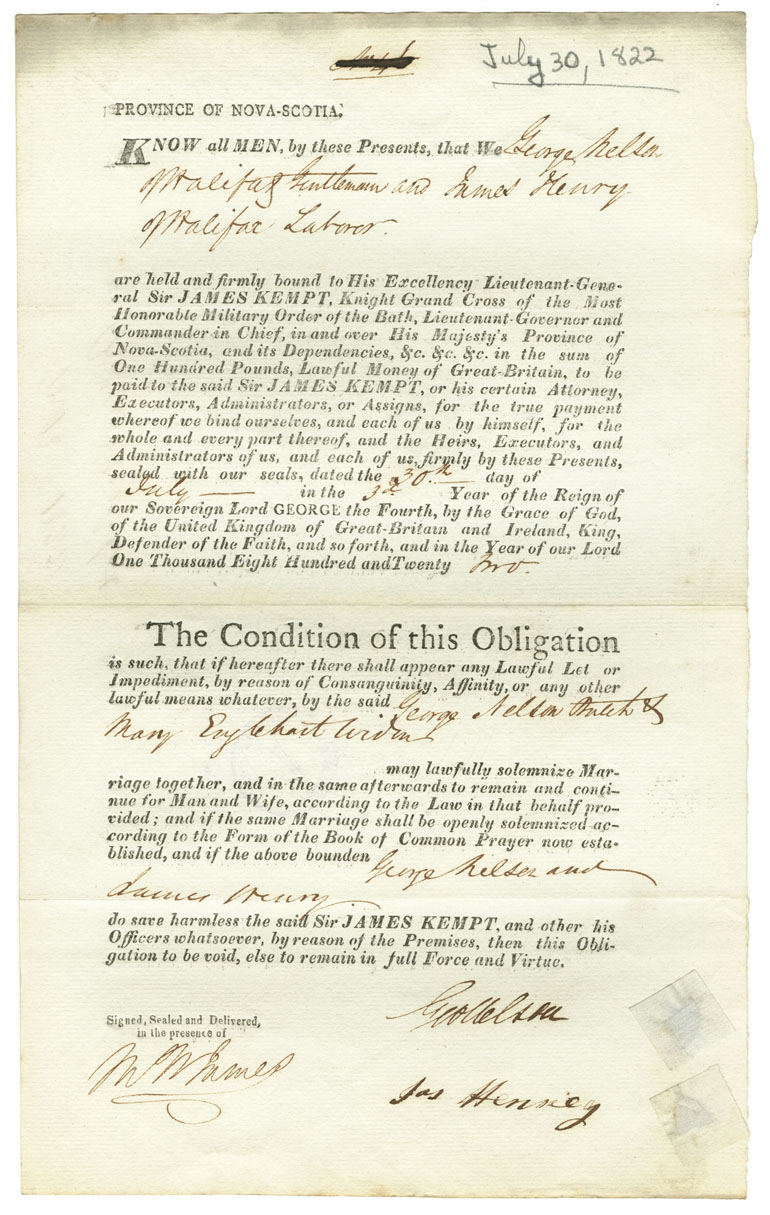 July 30, 1822
PROVINCE OF NOVA-SCOTIA.
KNOW all MEN, by these Presents, that We George Nelson
of Halifax Gentleman and James Henry
of Halifax Laboror.
are held and firmly bound to His Excellency Lieutenant-Gene-
ral Sir JAMES KEMPT, Knight Grand Cross of the Most
Honorable Military Order of the Bath, Lieutenant-Governor and
Commander in Chief, in and over His Majesty's Province of
Nova-Scotia, and its Dependencies, &c. &c. &c. in the sum of
One Hundred Pounds, Lawful Money of Great-Britain, to be
paid to the said Sir JAMES KEMPT, or his certain Attorney,
Executors, Administrators, or Assigns, for the true payment
whereof we bind ourselves, and each of us by himself, for the
whole and every part thereof, and the Heirs, Executors, and
Administrators of us, and each of us, firmly by these Presents,
sealed with our seals, dated the 30th day of
July in the 3d Year of the Reign of
our Sovereign Lord GEORGE the Fourth, by the Grace of God,
of the United Kingdom of Great-Britain and Ireland, King,
Defender of the Faith, and so forth, and in the Year of our Lord
One Thousand Eight Hundred and Twenty two.
The Condition of this Obligation
is such, that if hereafter there shall appear any Lawful Let or
Impediment, by reason of Consanguinity, Affinity, or any other
lawful means whatever, by the said George Nelson &
Mary Englehart widow
may lawfully solemnize Mar-
riage together, and in the same afterwards to remain and conti-
nue for Man and Wife, according to the Law in that behalf pro-
vided; and if the same Marriage shall be openly solemnized ac-
cording to the Form of the Book of Common Prayer now esta-
blished, and if the above bounden George Nelson and
James Henry
do save harmless the said Sir JAMES KEMPT, and other his
Officers whatsoever, by reason of the Premises, then this Obli-
gation to be void, else to remain in full Force and Virtue.
Signed, Sealed and Delivered,
in the presence of
Geo Nelson
James
Jas Henrey